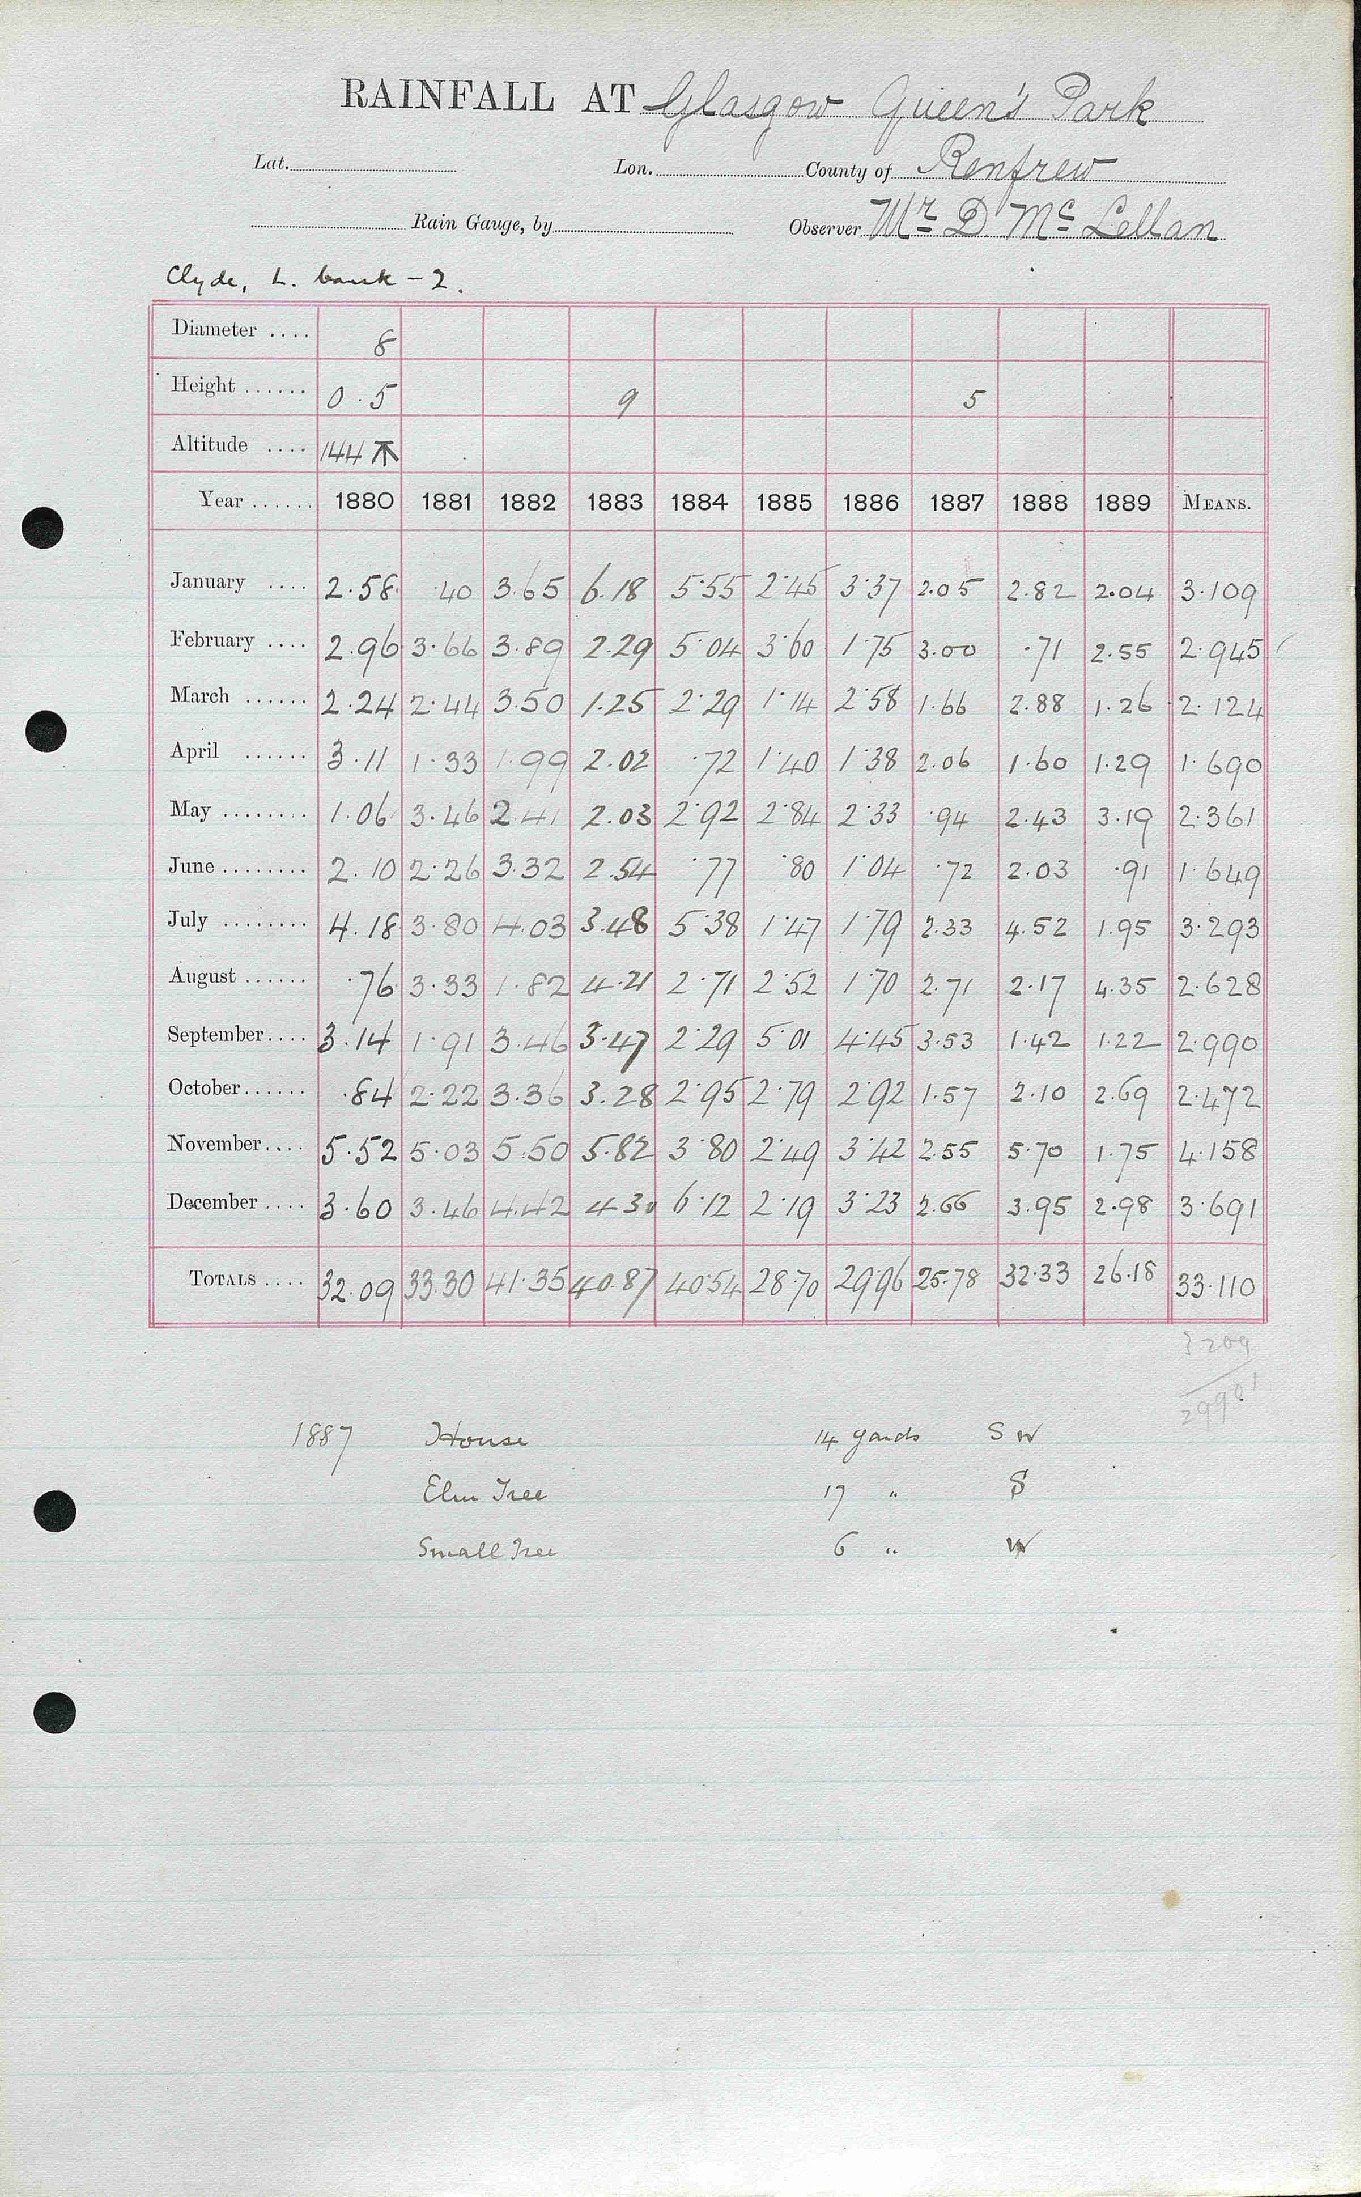 RAINFALL AT Glasgow Queen's Park
Lat. Lon. County of Renfrew
Rain Gauge, by Observer Mr D McLellan
Clyde, L. bank - 2.
Diameter .... 8
Height ...... 0.5 9 5
Altitude .... 144
Year ...... 1880 1881 1882 1883 1884 1885 1886 1887 1888 1889 MEANS.
January .... 2.58 .40 3.65 6.18 5.55 2.45 3.37 2.05 2.82 2.04 3.109
February .... 2.96 3.66 3.89 2.29 5.04 3.60 1.75 3.00 .71 2.55 2.945
March ...... 2.24 2.44 3.50 1.25 2.29 1.14 2.58 1.66 2.88 1.26 2.124
April ...... 3.11 1.33 1.99 2.02 .72 1.40 1.38 2.06 1.60 1.29 1.690
May ........ 1.06 3.46 2.41 2.03 2.92 2.84 2.33 .94 2.43 3.19 2.361
June ........ 2.10 2.26 3.32 2.54 .77 .80 1.04 .72 2.03 .91 1.649
July ........ 4.18 3.80 4.03 3.48 5.38 1.47 1.79 2.33 4.52 1.95 3.293
August ...... .76 3.33 1.82 4.21 2.71 2.52 1.70 2.71 2.17 4.35 2.628
September .... 3.14 1.91 3.46 3.47 2.29 5.01 4.45 3.53 1.42 1.22 2.990
October ...... .84 2.22 3.36 3.28 2.95 2.79 2.92 1.57 2.10 2.69 2.472
November .... 5.52 5.03 5.50 5.82 3.80 2.49 3.42 2.55 5.70 1.75 4.158
December .... 3.60 3.46 4.42 4.30 6.12 2.19 3.23 2.66 3.95 2.98 3.691
TOTALS .... 32.09 33.30 41.35 40.87 40.54 28.70 29.96 25.78 32.33 26.18 33.110
3209
29901
1887 House 14 yards S W
Elm Tree 17 " S
Small Tree 6 " W